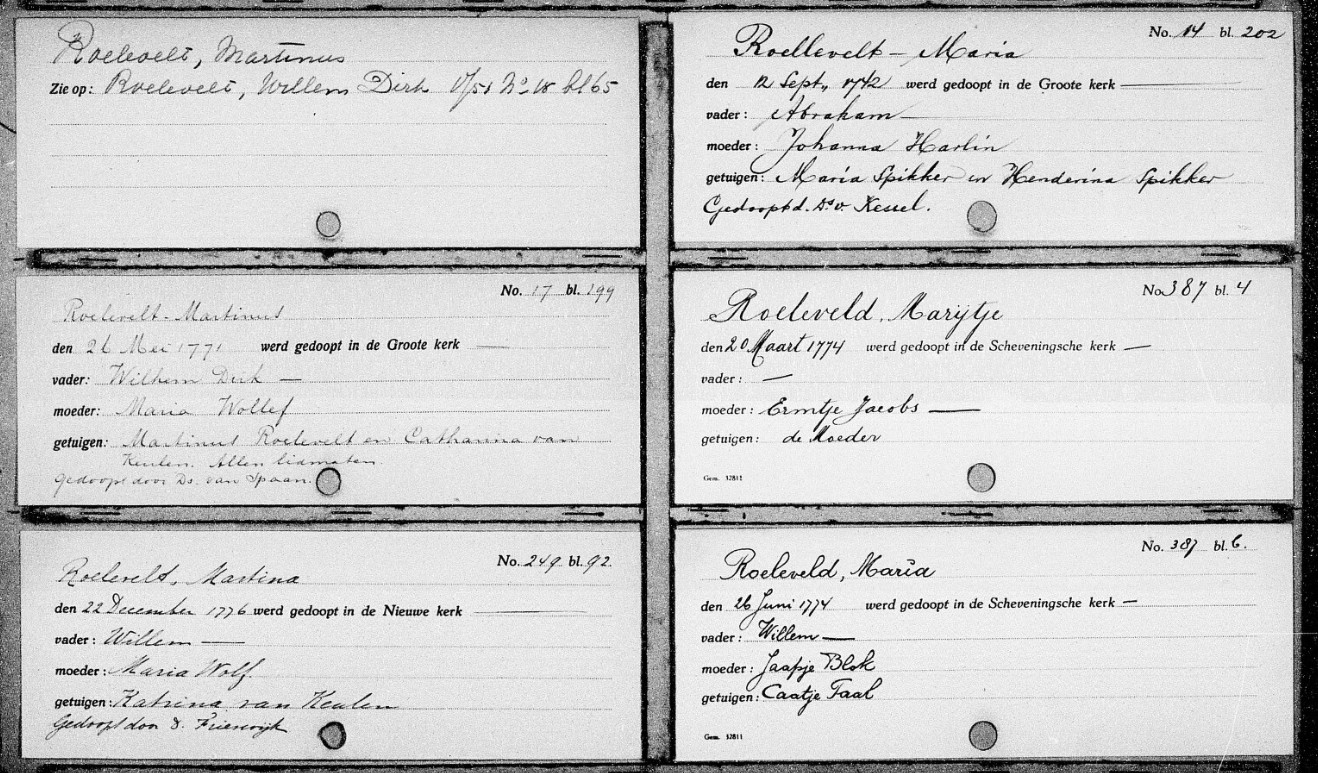 Roelevelt, Martinus
Zie op: Roelevelt, Willem Dirk 1/51 No 18 bl 65
No. 17 bl. 199
Roelevelt - Martinus
den 26 Mei 1771 werd gedoopt in de Groote kerk —
vader: Wilhem Dirk —
moeder: Maria Wollef
getuigen: Martinus Roelevelt en Catharina van
Keulen. Allen lidmaten.
Gedoopt door Ds. van Spaan.
No. 249 bl. 92.
Roelevelt, Martina
den 22 December 1776 werd gedoopt in de Nieuwe kerk —
vader: Willem —
moeder: Maria Wolf.
getuigen: Katrina van Keulen
Gedoopt door D.
No. 14 bl. 202
Roellevelt - Maria
den 12 Sept. 1742 werd gedoopt in de Groote kerk —
vader: Abraham —
moeder: Johanna Harlin
getuigen: Maria Spikker en Henderina Spikker
Gedoopt d. Ds. v. Kessel.
No 387 bl. 4
Roeleveld, Marijtje
den 20 Maart 1774 werd gedoopt in de Scheveningsche kerk —
vader: —
moeder: Ermtje Jacobs —
getuigen: de Moeder
Gem. 12811
No. 387 bl. 6.
Roeleveld, Maria
den 26 Juni 1774 werd gedoopt in de Scheveningsche kerk —
vader: Willem —
moeder: Jaapje Blok
getuigen: Caatje Taal
Gem. 12811